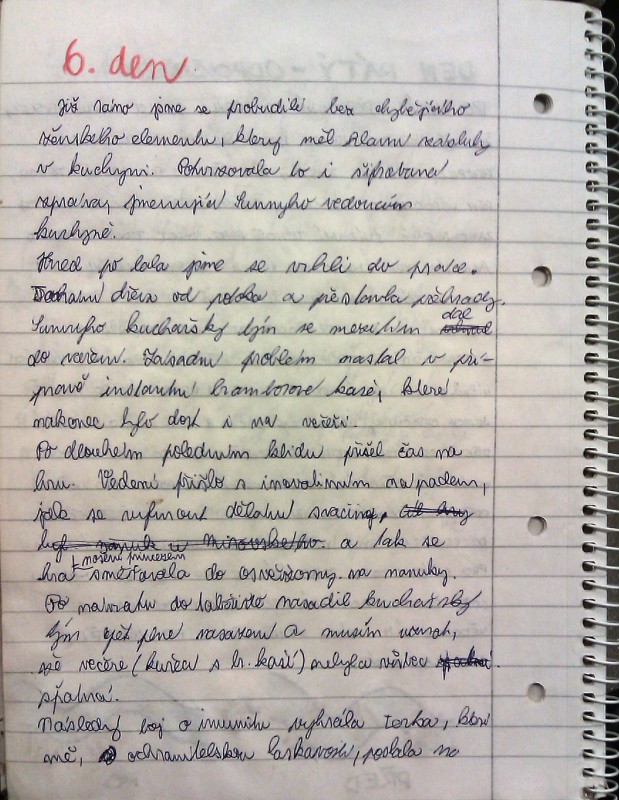 6. den
Již ráno jsme se probudili bez chybějícího
ženského elementu, který měl hlavní zásluhy
v kuchyni. Potvrzovala to i šifrovaná
zpráva, jmenující Sunnyho vedoucím
kuchyně.
Hned po tom jsme se vrhli do práce.
dřeva od potoka a přestavba přehrady.
Sunnyho kuchařský tým se mezitím dal
do vaření. Zásadní problém nastal v pří-
pravě instantní bramborové kaše, které
nakonec bylo dost i na večeři.
Po dlouhém poledním klidu přišel čas na
hru. Vedení přišlo s inovativním nápadem,
jak se vyhnout dělání svačiny, a tak se
hra - nošení princezen směřovala do osvěžovny na nanuky.
Po návratu do tábořiště nasadil kuchařský
tým opět plné nasazení a musím uznat,
že večeře (kuřecí s br. kaší) nebyla vůbec
špatná.
Následný boj o imunitu vyhrála Terka, která
mě, ochranitelskou laskavostí, poslala na